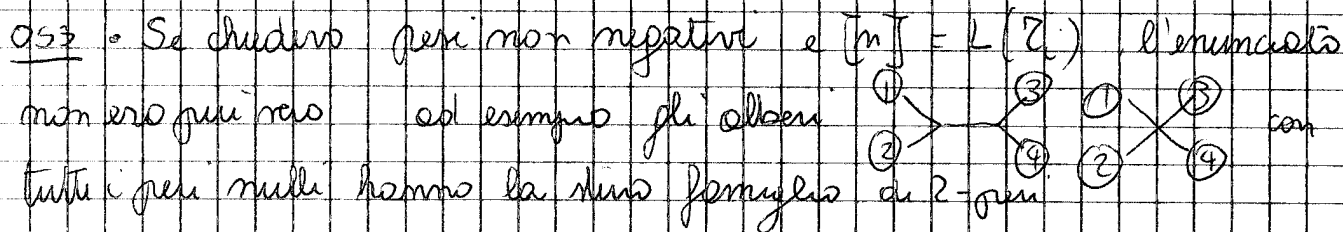 oss • Se chiedevo pesi non negativi e [n] = L(T) l'enunciato
non era più vero ad esempio gli alberi 1 2 3 4 1 2 3 4 con
tutti i pesi nulli hanno la stessa famiglia di 2-pesi